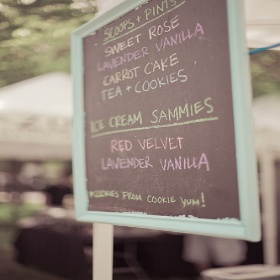 SCOOPS + PINTS
SWEET ROSE
LAVENDER VANILLA
CARROT CAKE
TEA + COOKIES
ICE CREAM SAMMIES
RED VELVET
LAVENDER VANILLA
*COOKIES FROM COOKIE YUM!